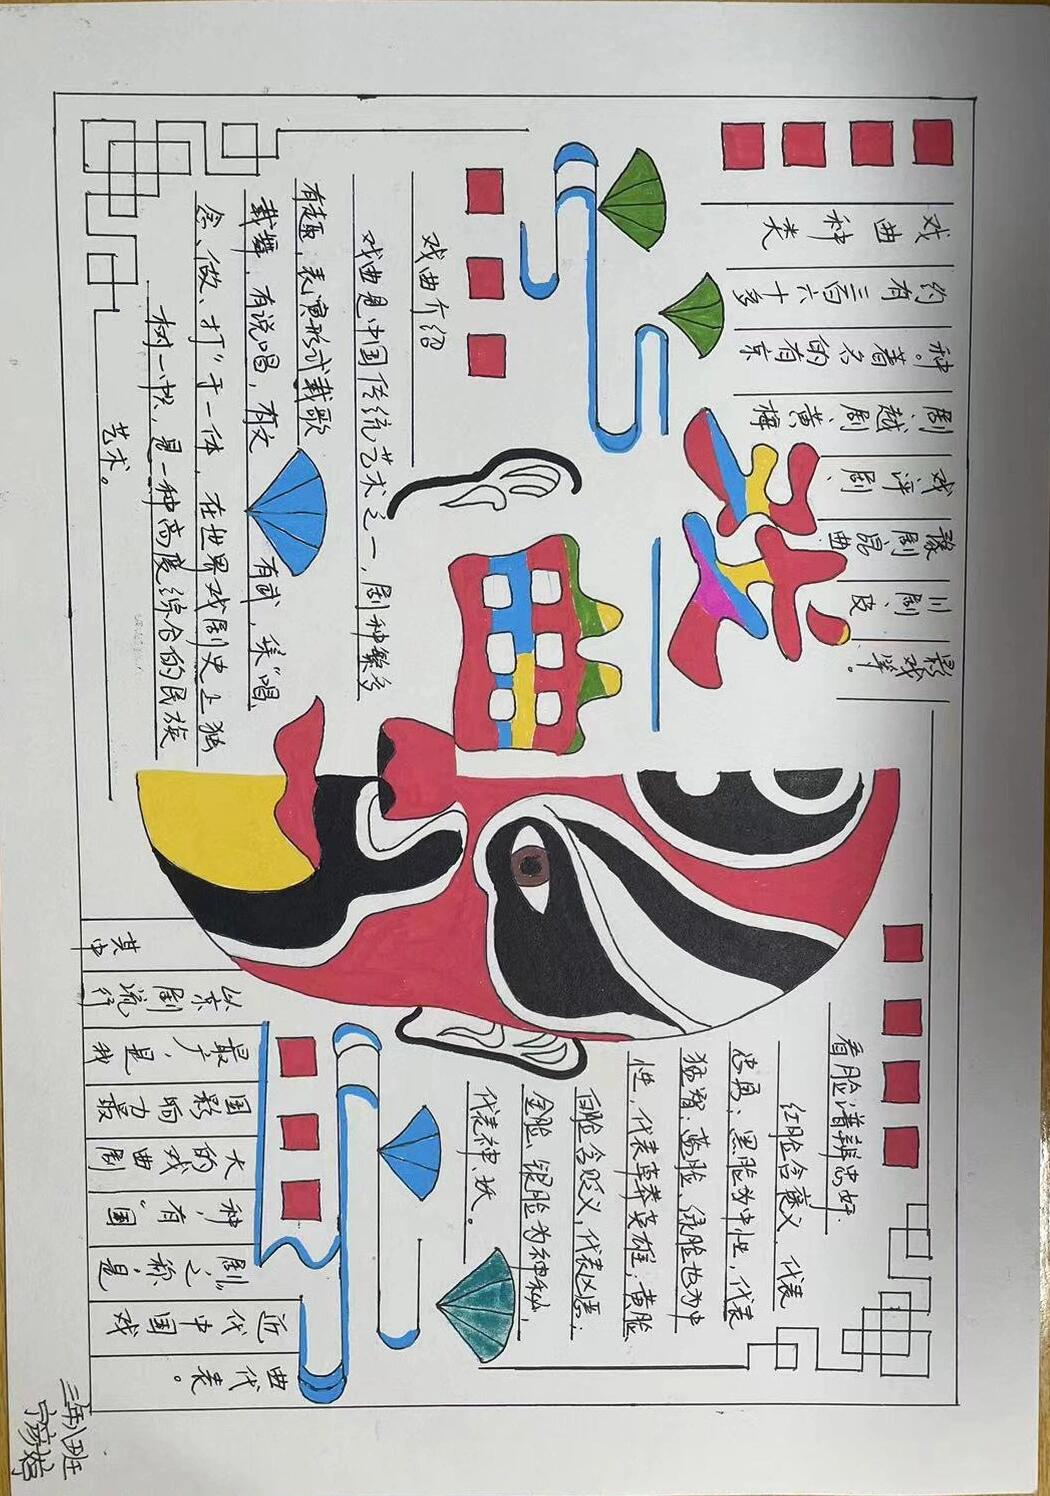 戏曲
戏曲种类
约有三百六十多
种。著名的有京
剧越剧、黄梅
戏、评剧、
豫剧昆曲
川剧、皮
影戏等。
看脸谱辨忠奸
红脸含褒义,代表
忠勇;黑脸为中性,代表
猛智;蓝脸、绿脸也为中
性,代表草莽英雄;黄脸
白脸含贬义,代表凶恶;
金脸、银脸为神秘,
代表神妖。
戏曲介绍
戏曲是中国传统艺术之一,剧种繁多
有趣,表演形式载歌
载舞,有说唱,有文有武,集“唱
念、做、打”于一体,在世界戏剧史上独
树一帜,是一种高度综合的民族
艺术。
其中
以京剧流行
最广,是我
国影响力最
大的戏曲剧
种,有“国
剧”之称,是
近代中国戏
曲代表。
三年八班